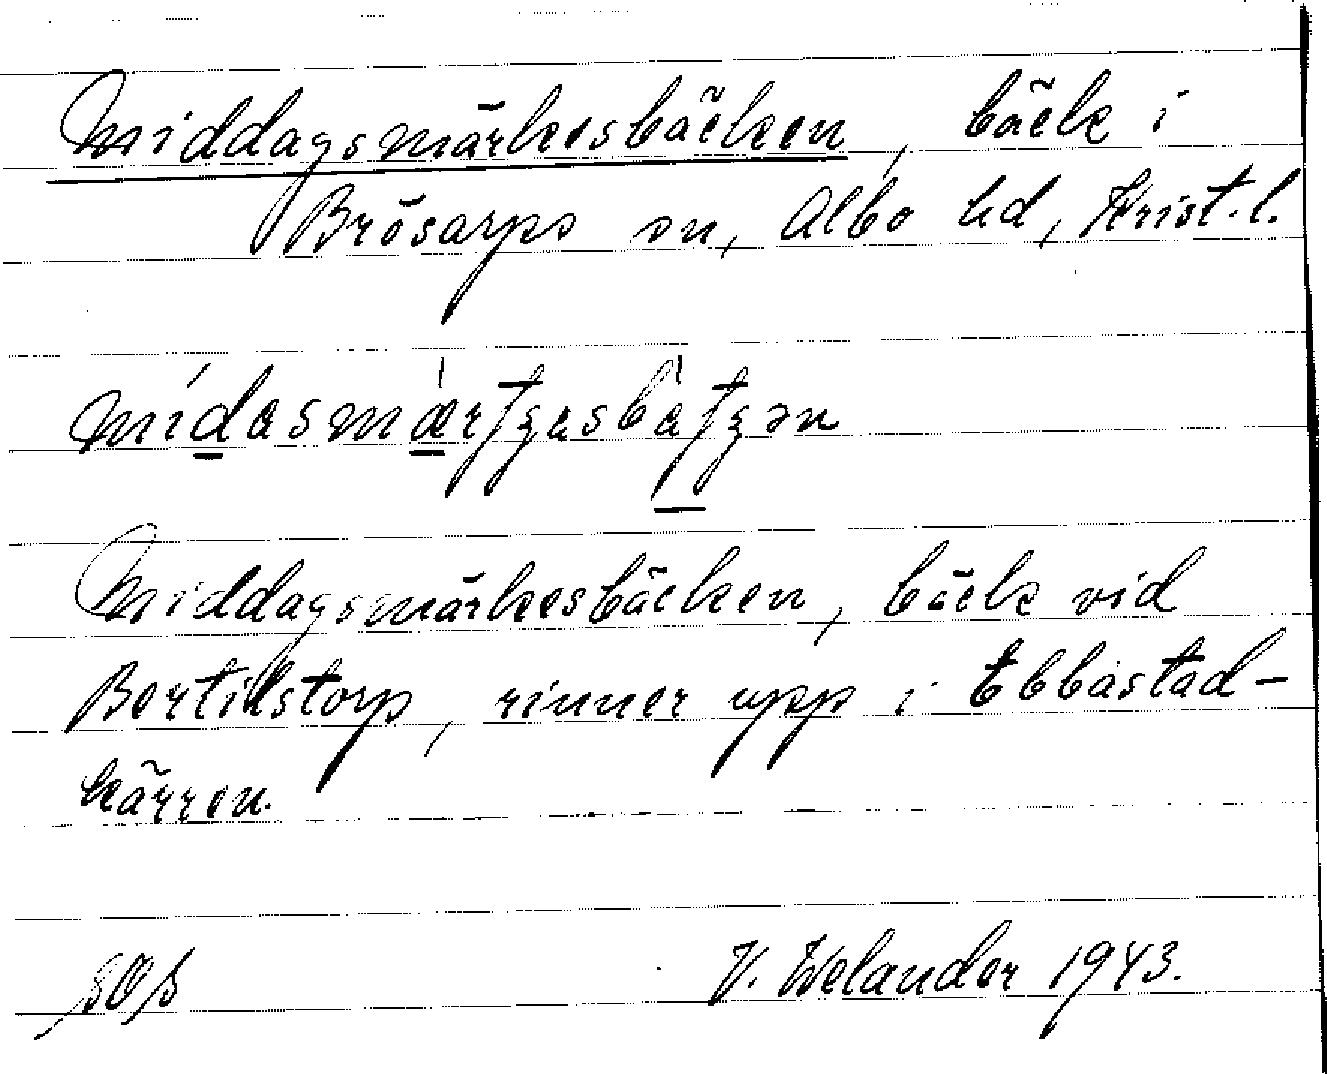 Middagsmärkesbäcken, bäck i
Brösarps sn, Albo hd, Krist. l.
Middagsmärkesbäcken, bäck vid
Bertilstorp, rinner upp i Ebbastad-
kärren.
V. Welander 1943.